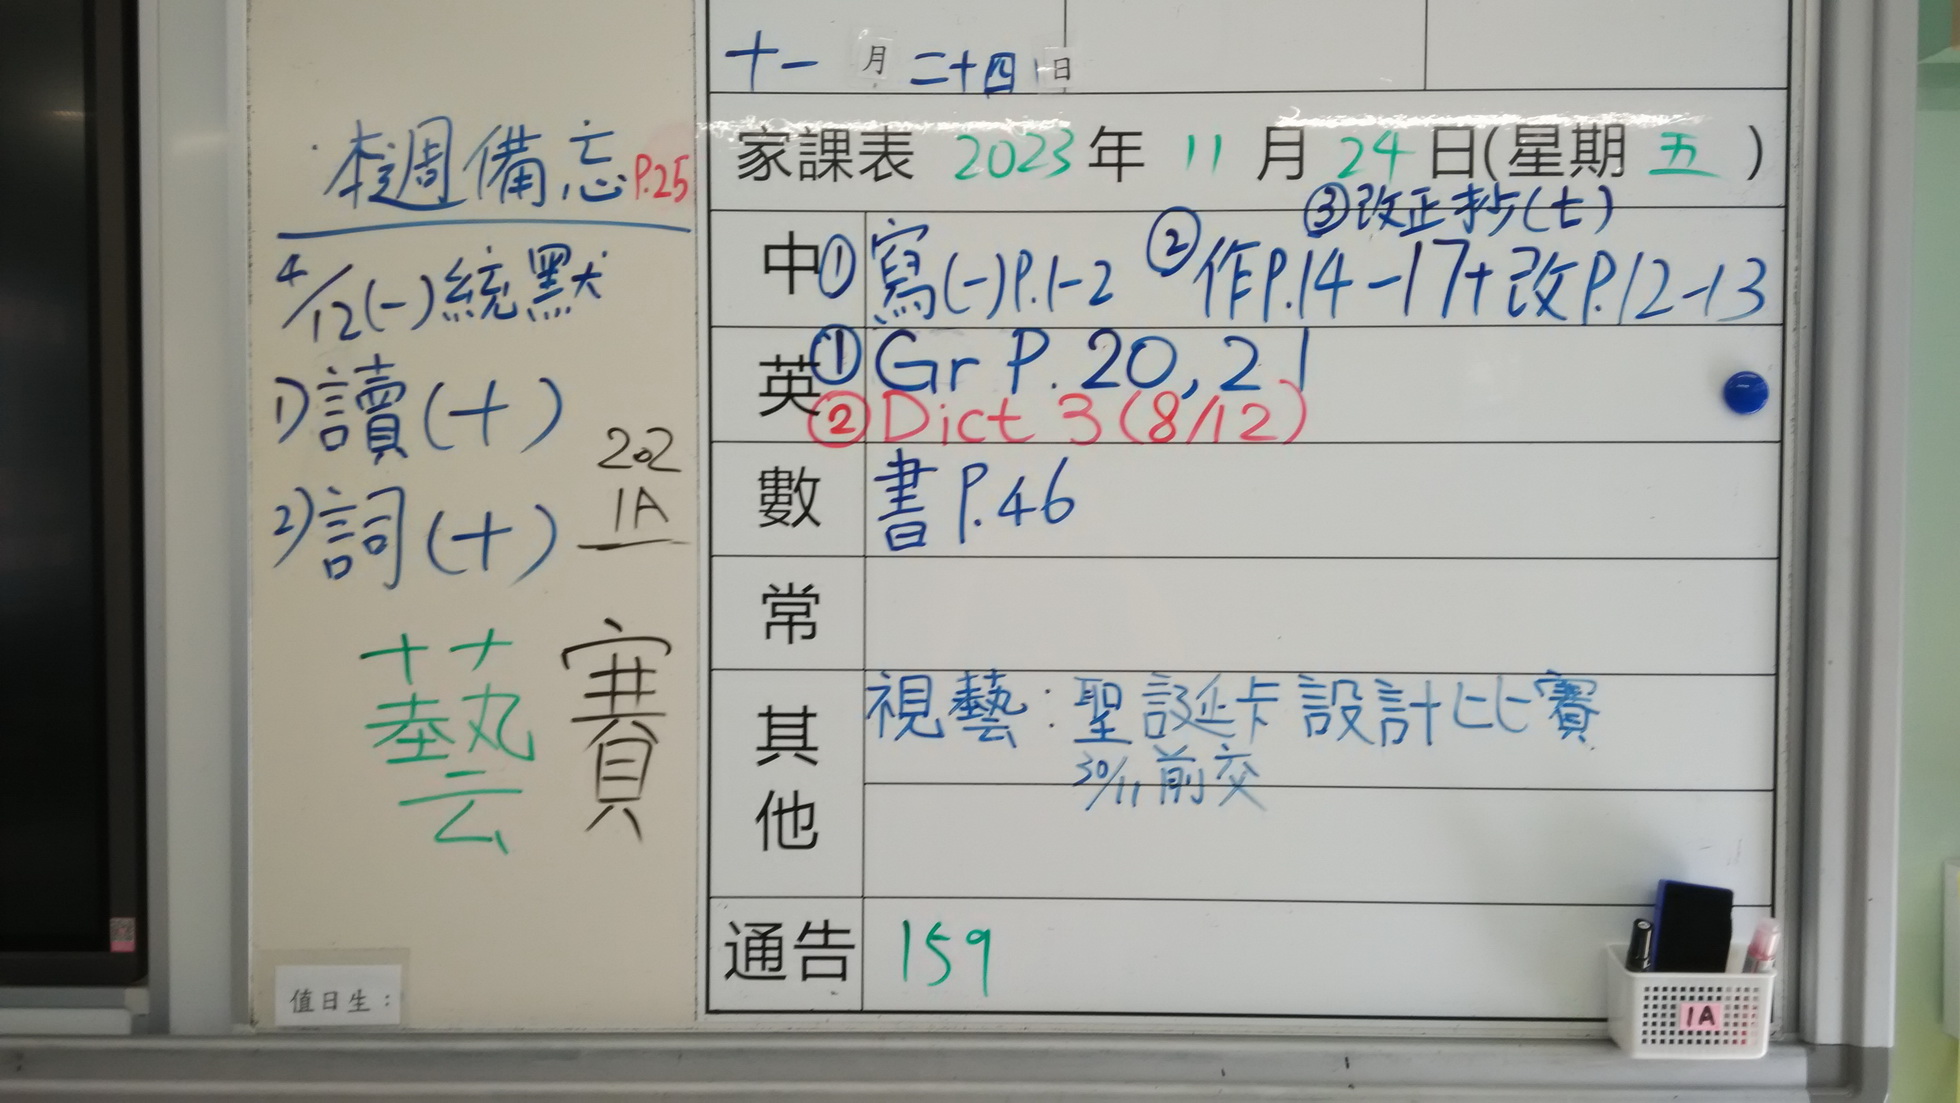 十一月二十四日
家課表 2023年 11月 24日(星期五)
③改正抄(七)
中 ①寫(一)P.1-2 ②作P.14-17+改P.12-13
英 ①Gr P.20,21
②Dict 3(8/12)
數 書P.46
常
其他 視藝:聖誕卡設計比賽
30/11前交
通告 159
本週備忘 P.25
4/12(一)統默
1)讀(十)
2)詞(十)
202
1A
藝 賽
值日生:
1A